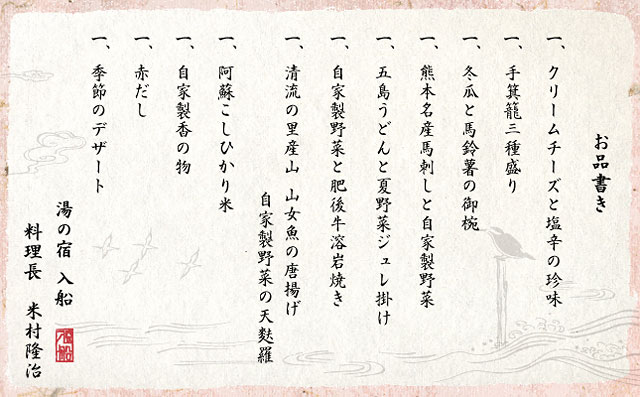 お品書き
一、クリームチーズと塩辛の珍味
一、手箕籠三種盛り
一、冬瓜と馬鈴薯の御椀
一、熊本名産馬刺しと自家製野菜
一、五島うどんと夏野菜ジュレ掛け
一、自家製野菜と肥後牛溶岩焼き
一、清流の里産山 山女魚の唐揚げ
自家製野菜の天麩羅
一、阿蘇こしひかり米
一、自家製香の物
一、赤だし
一、季節のデザート
湯の宿 入船
料理長 米村隆治